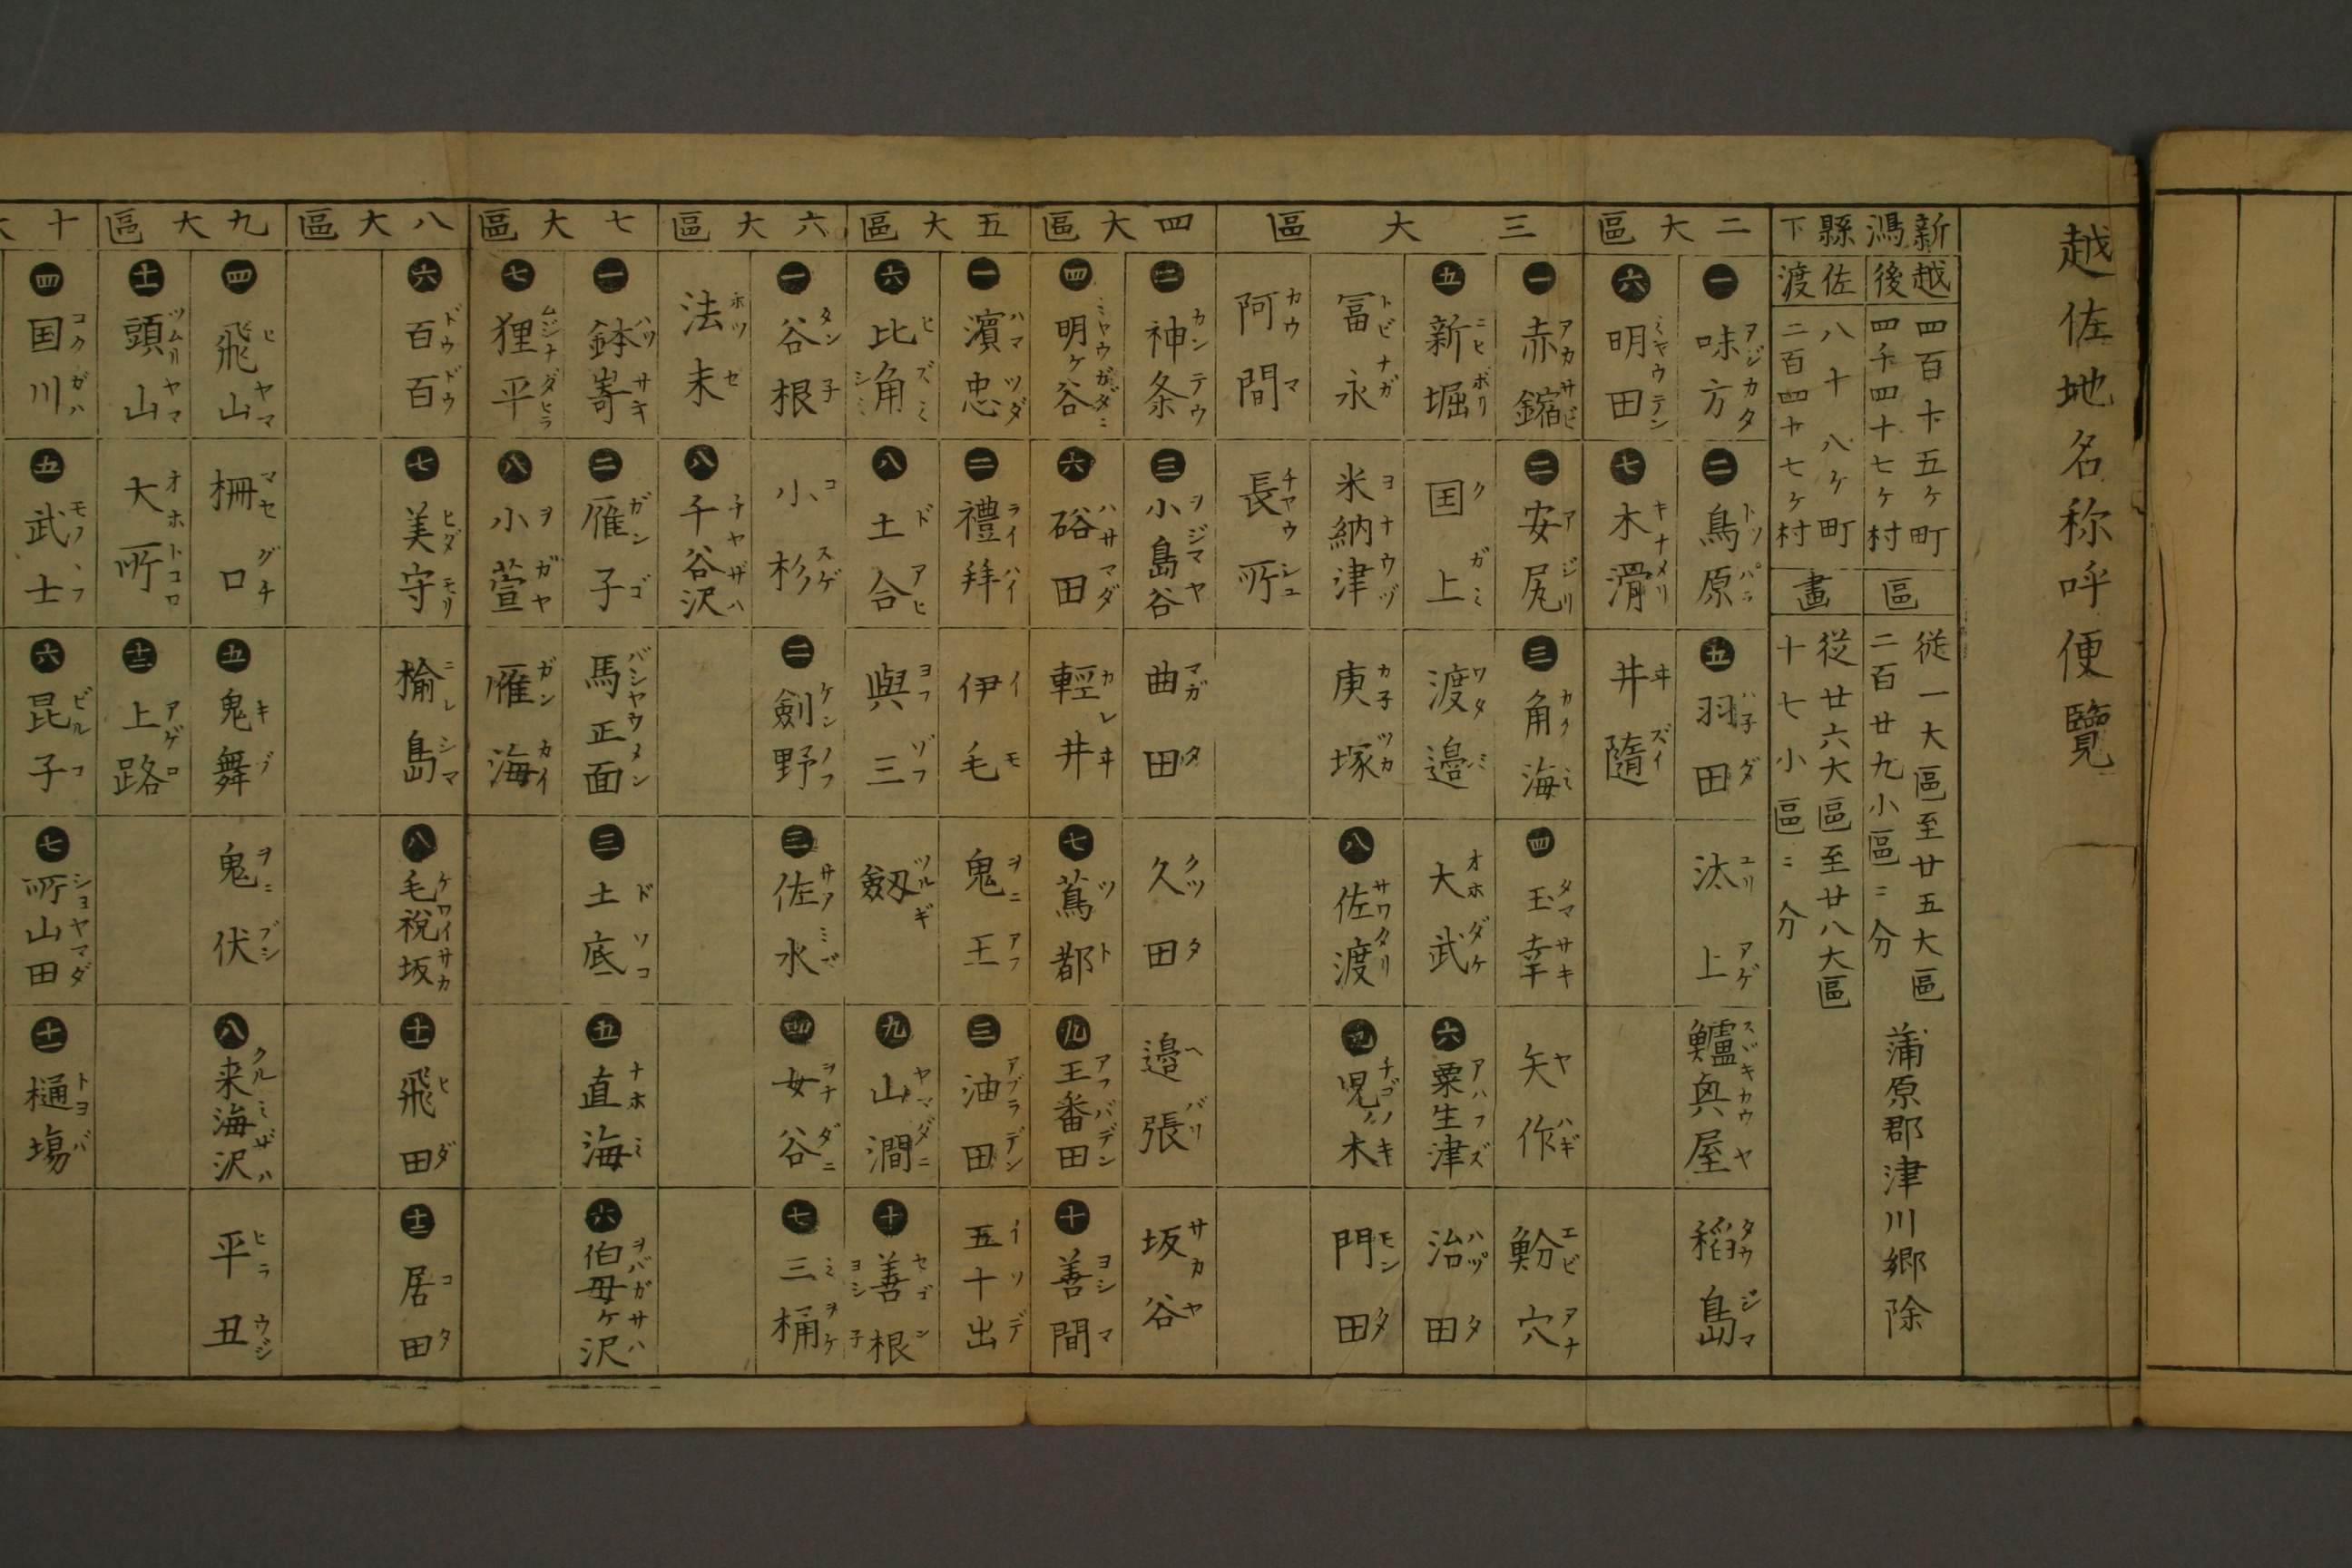 越佐地名称呼便覽
新潟縣下
越後
四百十五ヶ町
四千四十七ヶ村
佐渡
八十八ヶ町
二百四十七ヶ村
區
畫
従一大區至廿五大區
二百廿九小區ニ分
蒲原郡津川郷除
従廿六大區至廿八大區
十七小區ニ分
二大區
一 味方 アジカタ
二 鳥原 トツパラ
五 羽田 ハ子ダ
汰上 ユリアゲ
鱸奥屋 スヾキカウヤ
稻島 タウジマ
六 明田 ミヤウテン
七 木滑 キナメリ
井隨 ヰズイ
三大區
一 赤鏥 アカサビ
二 安尻 アジリ
三 角海 カクミ
四 玉幸 タマサキ
矢作 ヤハギ
魵穴 エビアナ
五 新堀 ニヒボリ
国上 クガミ
渡邉 ワタミ
大武 オホダケ
六 粟生津 アハフズ
治田 ハヅタ
冨永 トビナガ
米納津 ヨナウヅ
庚塚 カ子ツカ
八 佐渡 サワタリ
九 児木 チゴノキ
門田 モンタ
阿間 カウマ
長所 チヤウシユ
四大區
二 神条 カンテウ
三 小島谷 ヲジマヤ
曲田 マガタ
久田 クツタ
邉張 ヘバリ
坂谷 サカヤ
四 明ケ谷 ミヤウガダニ
六 硲田 ハサマダ
輕井 カレヰ
七 蔦都 ツト
九 王番田 アフバデン
十 善間 ヨシマ
五大區
一 濱忠 ハマツダ
二 禮拜 ライハイ
伊毛 イモ
鬼王 ヲニアフ
三 油田 アブラデン
五十出 イソデ
六 比角 ヒズミ シミ
八 土合 ドアヒ
與三 ヨフゾフ
劔 ツルギ
九 山澗 ヤマダニ
十 善根 セゴン ヨシ子
六大區
一 谷根 タン子
小杉 コスゲ
二 劍野 ケンノフ
三 佐水 サアミヅ
四 女谷 ヲナダニ
七 三桶 ミヲケ
法末 ホツセ
八 千谷沢 チヤザハ
七大區
一 鉢嵜 ハツサキ
二 雁子 ガンゴ
馬正面 バシヤウメン
三 土底 ドソコ
五 直海 ナホミ
六 伯母ケ沢 ヲバガサハ
七 狸平 ムジナダヒラ
八 小萱 ヲガヤ
雁海 ガンカイ
八大區
六 百百 ドウドウ
七 美守 ヒダモリ
楡島 ニレシマ
八 毛祝坂 ケワイサカ
十一 飛田 ヒダ
十二 居田 コタ
九大區
四 飛山 ヒヤマ
柵口 マセグチ
五 鬼舞 キブ
鬼伏 ヲニブシ
八 来海沢 クルミザハ
平丑 ヒラウジ
十一 頭山 ツムリヤマ
大所 オホトコロ
十二 上路 アゲロ
十大
四 国川 コクガハ
五 武士 モノヽフ
六 昆子 ビルコ
七 所山田 シヨヤマダ
十一 樋塲 トヨバ